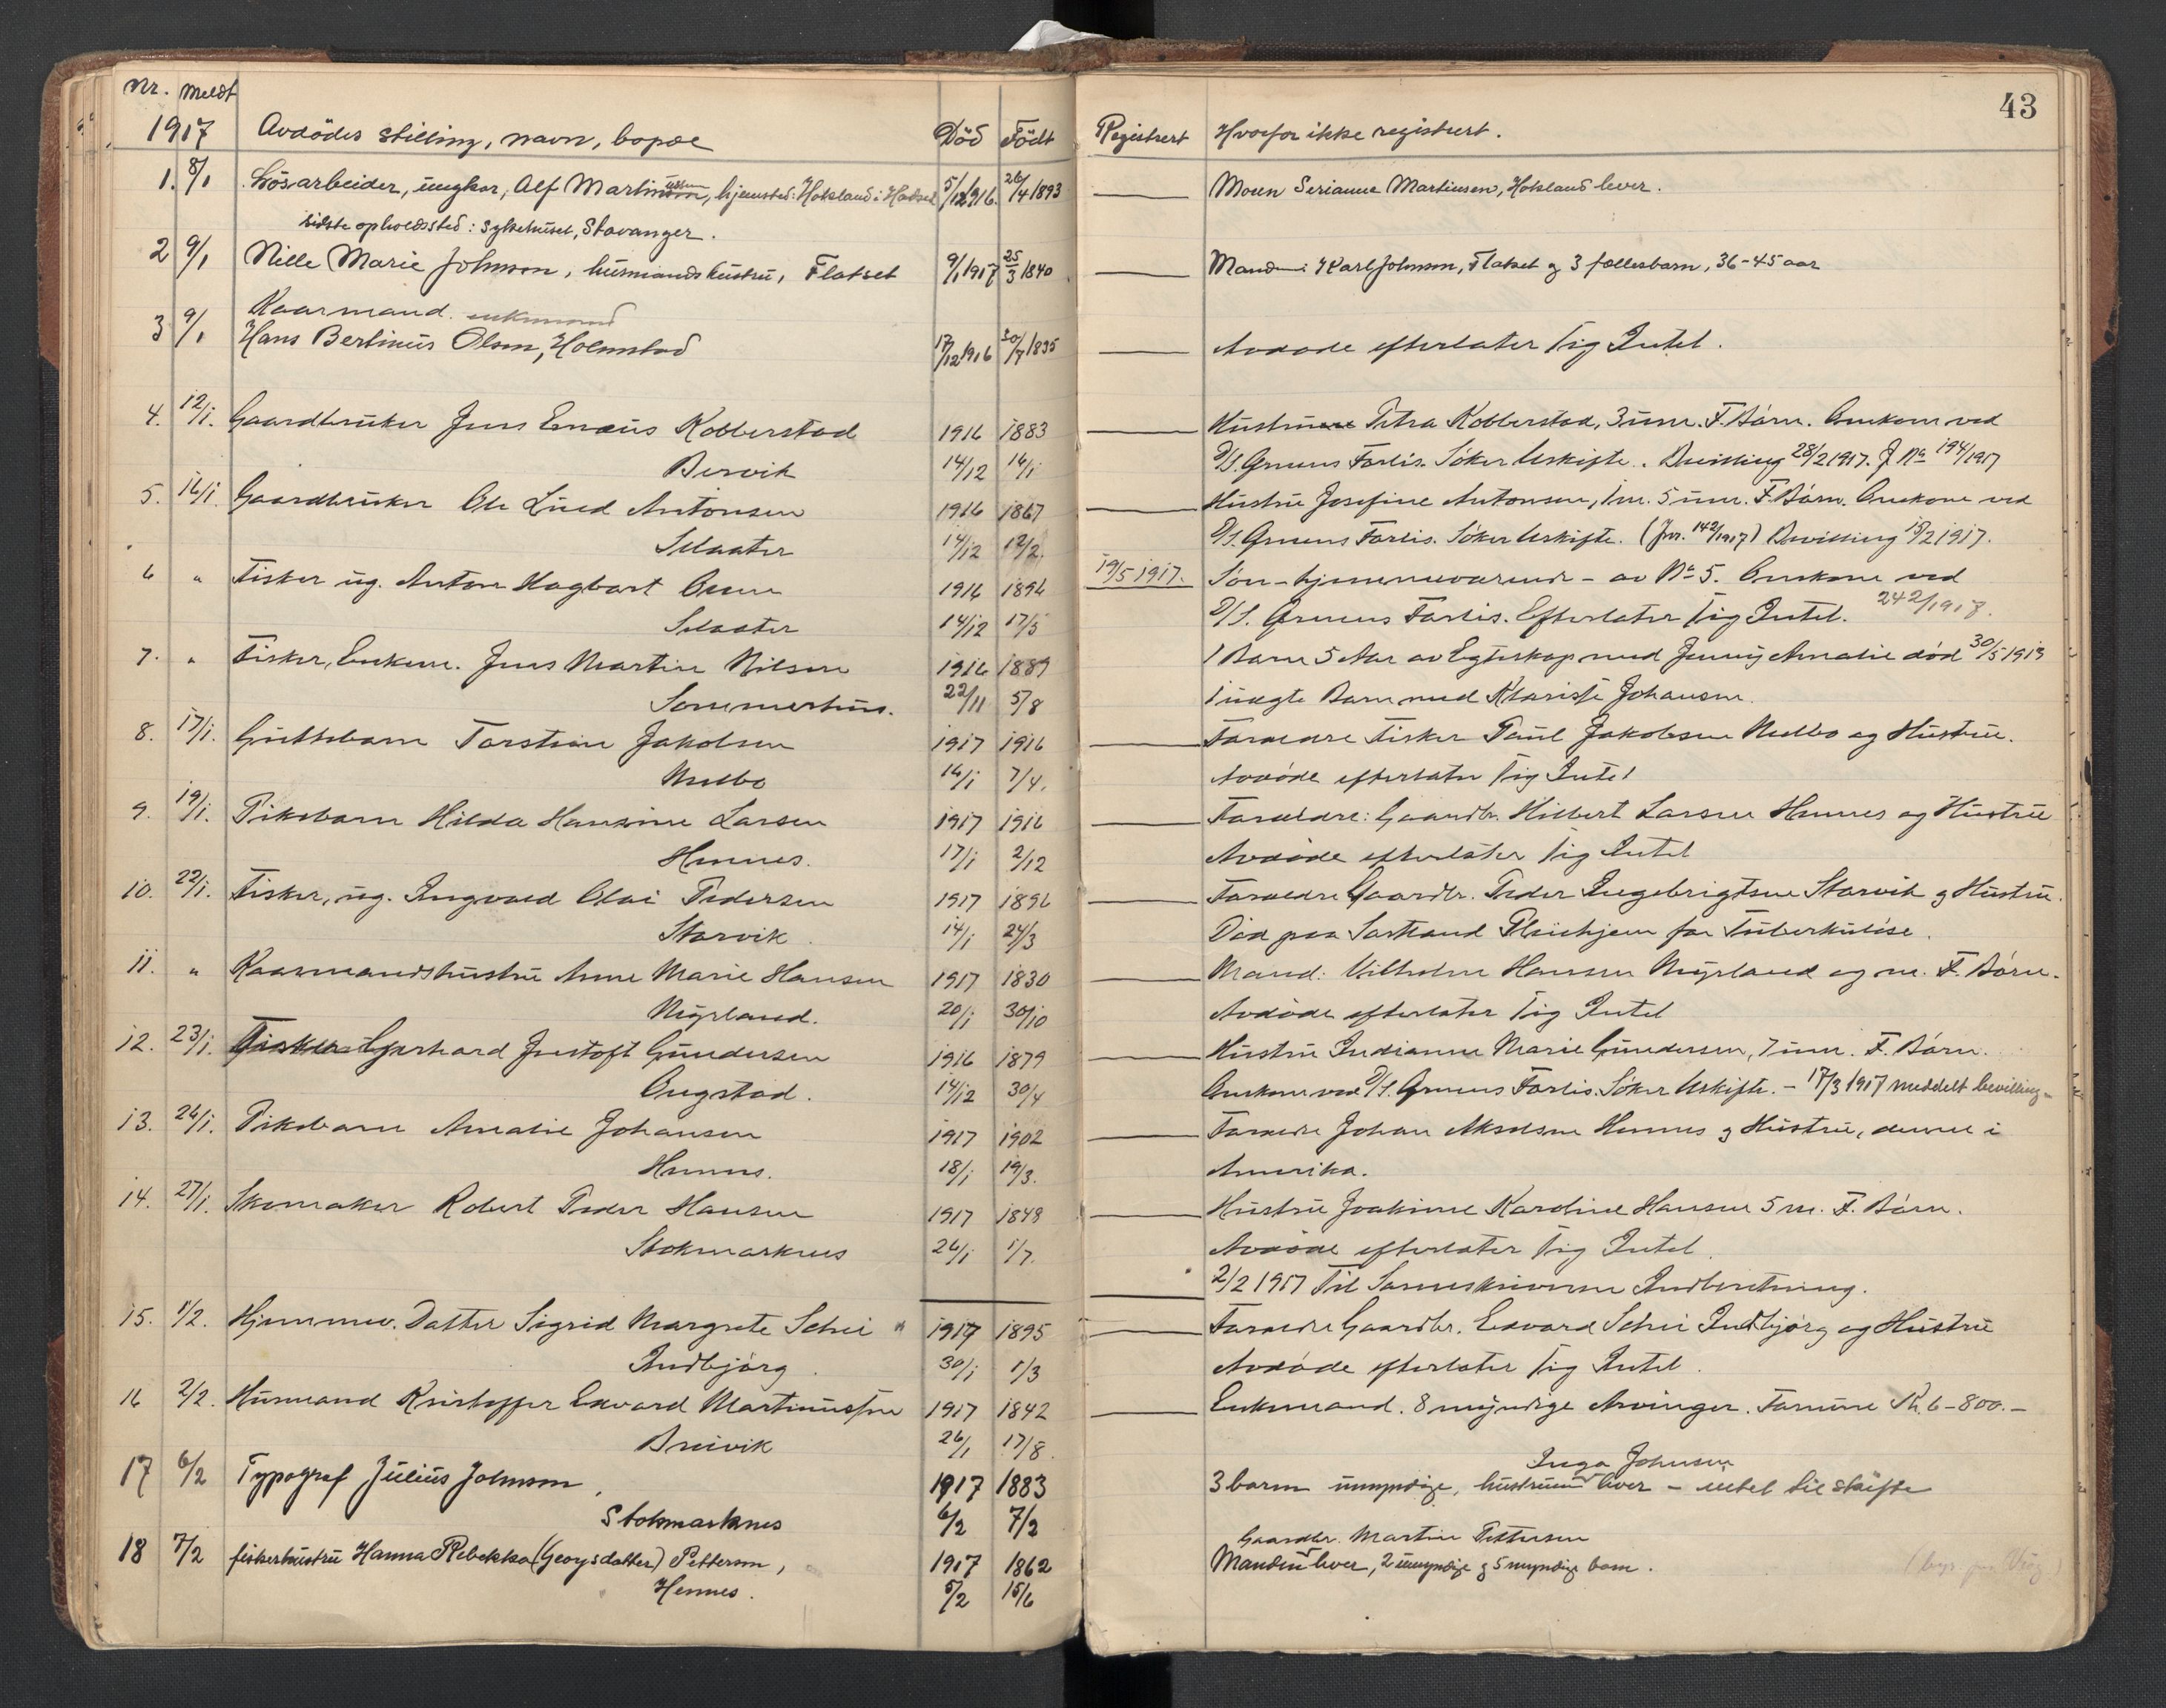 43
Nr. Meldt
1917 Avdödes stilling, navn, bopæl Död Födt Registrert Hvorfor ikke registrert.
1. 8/1 Lösarbeider, ungkar, Alf Martinussen, hjemsted: Hokland i Hadsel 5/12 1916. 26/4 1893 Moren Serianna Martinsen, Hokland lever.
sidste opholdssted: Sykehuset, Stavanger.
2 9/1 Nille Marie Johnson, husmandshustru, Flatset 9/1 1917 25/3 1840 Manden Karl Johnson, Flatset og 3 fællesbarn, 36-45 aar
Kaarmand. enkemand
3 9/1 Hans Bertinus Olsen, Holmstad 17/12 1916 30/7 1835 Avdøde efterlater sig Intet.
4. 12/1. Gaardbruker Jens Emæus Kobberstad 1916 1883 Hustru Petra Kobberstad, 3 um. F. Børn. Omkom ved
Bervik 14/12 16/1 D/S. Gruens Forlis. Søker Uskifte. Bevilling 28/2 1917. J No 194/1917
5. 16/1. Gaardbruker Ole Lued Antonsen 1916 1867 Hustru Josefine Antonsen, 1 m. 5 um. F. Børn. Omkom ved
Selaater 14/12 12/2. D/S. Gruens Forlis. Søker Uskifte. (Jnr. 142/1917) Bevilling 15/2 1917.
6 " Fisker ug. Anton Hagbart Olsen 1916 1894 19/5 1917. Søn - hjemmeværende - av No 5. Omkom ved
Selaater 14/12 17/5 D/S. Gruens Forlis. Efterlater sig Intet. 242/1917.
7. " Fisker, Enkem. Jens Martin Nilsen 1916 1889 1 Barn 5 Aar av Egteskap med Jenny Amalie død 30/5 1913
Sommerhus. 22/11 5/8 1 uægte Barn med Klarisse Johansen.
8. 17/1. Guttebarn Torstein Jakobsen 1917 1916 Forældre Fisker Paul Jakobsen Melbo og Hustru.
Melbo 16/1 7/4. Avdøde efterlater sig Intet
9. 19/1. Pikebarn Hilda Hansine Larsen 1917 1916 Forældre: Gaardbr. Hilbert Larsen Hennes og Hustru
Hennes. 17/1 2/12 Avdøde efterlater sig Intet
10. 22/1. Fisker, ug. Ingvald Olai Pedersen 1917 1896 Forældre Gaardbr. Peder Ingebrigtsen Storvik og Hustru.
Storvik. 14/1 24/3 Død paa Sortland Pleiehjem for Tuberkuløse.
11. " Kaarmandshustru Anne Marie Hansen 1917 1830 Mand: Vilhelm Hansen Myrland og m. F. Børn.
Myrland. 20/1 30/10 Avdøde efterlater sig Intet
12. 23/1. Fisker Gerhard Justoft Gundersen 1916 1879 Hustru Indianne Marie Gundersen, 7 um. F. Børn.
Ongstad. 14/12 30/4 Omkom ved D/S. Gruens Forlis. Søker Uskifte. - 17/3 1917 meddelt bevilling -
13. 26/1. Pikebarn Amalie Johansen 1917 1902 Forældre Johan Akselsen Hennes og Hustru, denne i
Hennes. 18/1 19/3. Amerika.
14. 27/1. Skomaker Robert Peder Hansen 1917 1848 Hustru Joakime Karoline Hansen 5 m. F. Børn.
Stokmarknes 26/1 1/7. Avdøde efterlater sig Intet.
2/2 1917 Til Sorenskriveren Indberetning.
15. 1/2. Hjemmev. Datter Sigrid Margrete Schei " 1917 1895 Forældre Gaardbr. Edvard Schei Indbjørg og Hustru
Indbjørg. 30/1 1/3 Avdøde efterlater sig Intet.
16 2/2. Husmand Kristoffer Edvard Martinussen 1917 1842 Enkemand. 8 myndige Arvinger. Formue Kr. 6-800.-
Breivik 26/1 17/8. Inga Johnsen
17 6/2 Typograf Julius Johnson, 1917 1883 3 barn umyndige, hustruen lever - intet til skifte
Stokmarknes 6/2 7/2 Gaardbr. Martin Pettersen
18 7/2 fiskerhustru Hanna Rebekka (Georgsdatter) Petterson, 1917 1862 Manden lever, 2 umyndige og 5 myndige barn.
Hennes. 5/2 15/6